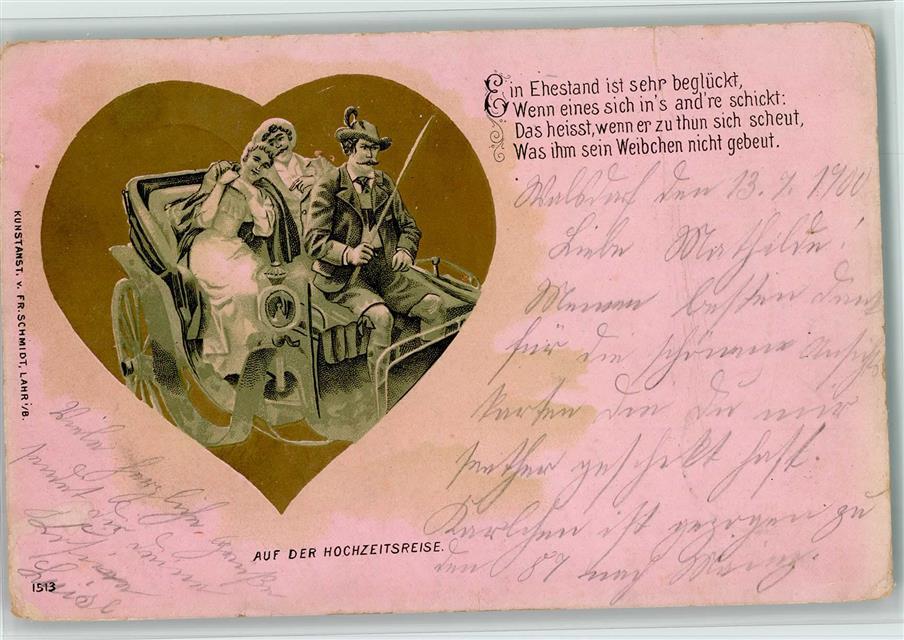 Ein Ehestand ist sehr beglückt,
Wenn eines sich in's and're schickt:
Das heisst, wenn er zu thun sich scheut,
Was ihm sein Weibchen nicht gebeut.
Walsdorf den 13. 9. 1900
Liebe Mathilde!
Meinen besten Dank
für die schönen Ansichts
karten die du mir
seither geschickt hast.
Karlchen ist gezogen zu
den 87 nach Mainz.
KUNSTANST. v. FR. SCHMIDT, LAHR i/B.
AUF DER HOCHZEITSREISE.
1513